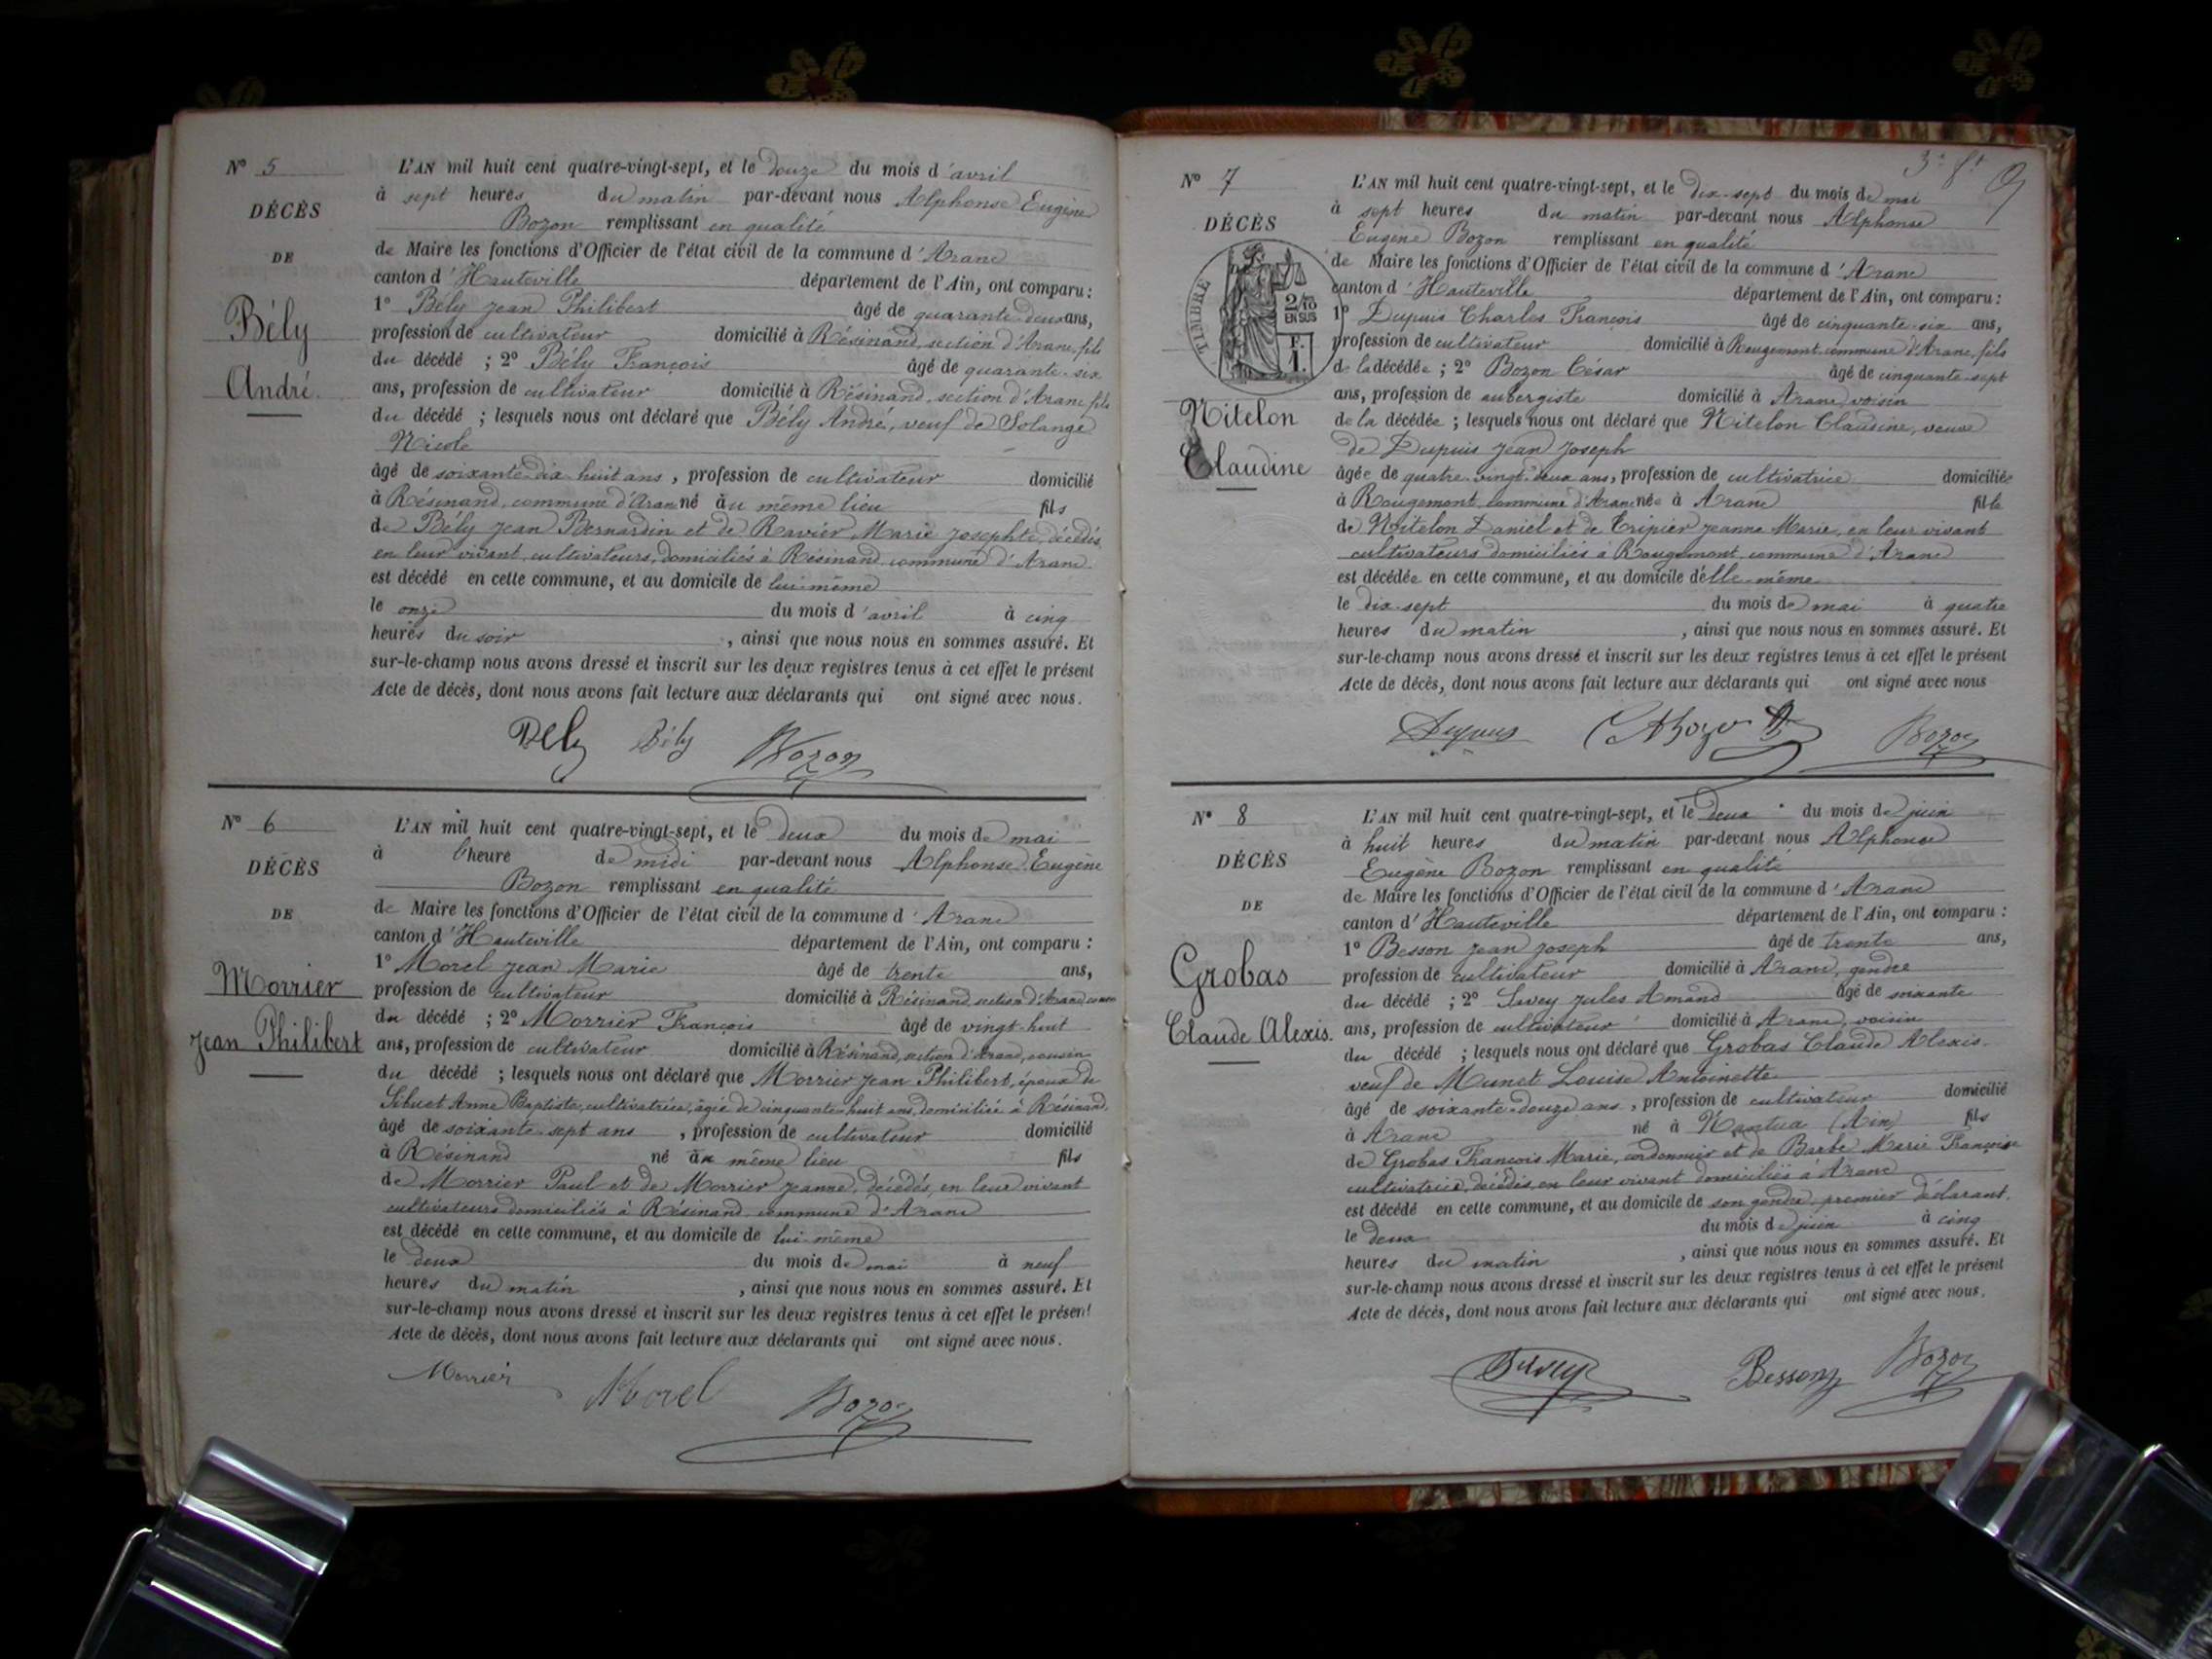 N° 5
DÉCÈS
DE
Bély
André.
L'AN mil huit cent quatre-vingt-sept, et le douze du mois d'avril
à sept heures du matin par-devant nous Alphonse Eugène
Bozon remplissant en qualité
de Maire les fonctions d'Officier de l'état civil de la commune d'Aranc
canton d'Hauteville département de l'Ain, ont comparu :
1° Bély Jean Philibert âgé de quarante-deux ans,
profession de cultivateur domicilié à Résinand, section d'Aranc, fils
du décédé ; 2° Bély François âgé de quarante-six
ans, profession de cultivateur domicilié à Résinand, section d'Aranc, fils
du décédé ; lesquels nous ont déclaré que Bély André, veuf de Solange
Nicole
âgé de soixante-dix-huit ans, profession de cultivateur domicilié
à Résinand, commune d'Aranc né au même lieu fils
de Bély Jean Bernardin et de Ravier Marie Josephte, décédés,
en leur vivant, cultivateurs, domiciliés à Résinand, commune d'Aranc.
est décédé en cette commune, et au domicile de lui-même
le onze du mois d'avril à cinq
heures du soir, ainsi que nous nous en sommes assuré. Et
sur-le-champ nous avons dressé et inscrit sur les deux registres tenus à cet effet le présent
Acte de décès, dont nous avons fait lecture aux déclarants qui ont signé avec nous.
Bély Bély Bozon
N° 6
DÉCÈS
DE
Morrier
Jean Philibert
L'AN mil huit cent quatre-vingt-sept, et le deux du mois de mai
à l'heure de midi par-devant nous Alphonse Eugène
Bozon remplissant en qualité
de Maire les fonctions d'Officier de l'état civil de la commune d'Aranc
canton d'Hauteville département de l'Ain, ont comparu :
1° Morel Jean Marie âgé de trente ans,
profession de cultivateur domicilié à Résinand, section d'Aranc
du décédé ; 2° Morrier François âgé de vingt-huit
ans, profession de cultivateur domicilié à Résinand, section d'Aranc, cousin
du décédé ; lesquels nous ont déclaré que Morrier Jean Philibert, époux de
Sibuet Anne Baptiste, cultivatrice, âgée de cinquante-huit ans, domiciliée à Résinand,
âgé de soixante-sept ans, profession de cultivateur domicilié
à Résinand né au même lieu fils
de Morrier Paul et de Morrier Jeanne, décédés, en leur vivant
cultivateurs domiciliés à Résinand, commune d'Aranc
est décédé en cette commune, et au domicile de lui-même
le deux du mois de mai à neuf
heures du matin, ainsi que nous nous en sommes assuré. Et
sur-le-champ nous avons dressé et inscrit sur les deux registres tenus à cet effet le présent
Acte de décès, dont nous avons fait lecture aux déclarants qui ont signé avec nous.
Morrier Morel Bozon
3e ft
N° 7
DÉCÈS
TIMBRE
2/10
EN SUS
F.
1.
Nitelon
Claudine
L'AN mil huit cent quatre-vingt-sept, et le dix-sept du mois de mai
à sept heures du matin par-devant nous Alphonse
Eugène Bozon remplissant en qualité
de Maire les fonctions d'Officier de l'état civil de la commune d'Aranc
canton d'Hauteville département de l'Ain, ont comparu :
1° Dupuis Charles François âgé de cinquante-six ans,
profession de cultivateur domicilié à Rougemont, commune d'Aranc, fils
de la décédée ; 2° Bozon César âgé de cinquante-sept
ans, profession de aubergiste domicilié à Aranc, voisin
de la décédée ; lesquels nous ont déclaré que Nitelon Claudine, veuve
de Dupuis Jean Joseph
âgée de quatre-vingt-deux ans, profession de cultivatrice domiciliée
à Rougemont, commune d'Aranc née à Aranc fille
de Nitelon Daniel et de Tripier Jeanne Marie, en leur vivant
cultivateurs domiciliés à Rougemont, commune d'Aranc
est décédée en cette commune, et au domicile d'elle-même
le dix-sept du mois de mai à quatre
heures du matin, ainsi que nous nous en sommes assuré. Et
sur-le-champ nous avons dressé et inscrit sur les deux registres tenus à cet effet le présent
Acte de décès, dont nous avons fait lecture aux déclarants qui ont signé avec nous
Dupuis Bozon
N° 8
DÉCÈS
DE
Grobas
Claude Alexis.
L'AN mil huit cent quatre-vingt-sept, et le deux du mois de juin
à huit heures du matin par-devant nous Alphonse
Eugène Bozon remplissant en qualité
de Maire les fonctions d'Officier de l'état civil de la commune d'Aranc
canton d'Hauteville département de l'Ain, ont comparu :
1° Besson Jean Joseph âgé de trente ans,
profession de cultivateur domicilié à Aranc, gendre
du décédé ; 2° Savey Jules Amand âgé de soixante
ans, profession de cultivateur domicilié à Aranc, voisin
du décédé ; lesquels nous ont déclaré que Grobas Claude Alexis.
veuf de Munet Louise Antoinette
âgé de soixante-douze ans, profession de cultivateur domicilié
à Aranc né à Nantua (Ain) fils
de Grobas François Marie, cordonnier et de Barbe Marie Françoise
cultivatrice, décédés, en leur vivant domiciliés à Aranc
est décédé en cette commune, et au domicile de son gendre, premier déclarant,
le deux du mois de juin à cinq
heures du matin, ainsi que nous nous en sommes assuré. Et
sur-le-champ nous avons dressé et inscrit sur les deux registres tenus à cet effet le présent
Acte de décès, dont nous avons fait lecture aux déclarants qui ont signé avec nous.
Savey Besson Bozon